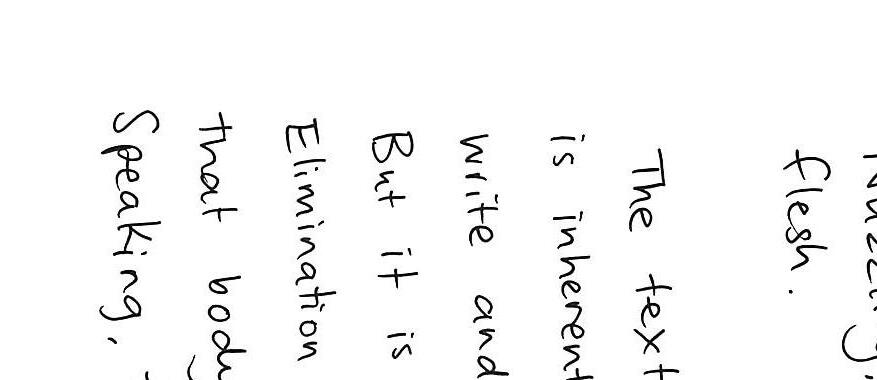 flesh.
The text
is inherent
write and
But it is
Elimination
that body
Speaking.